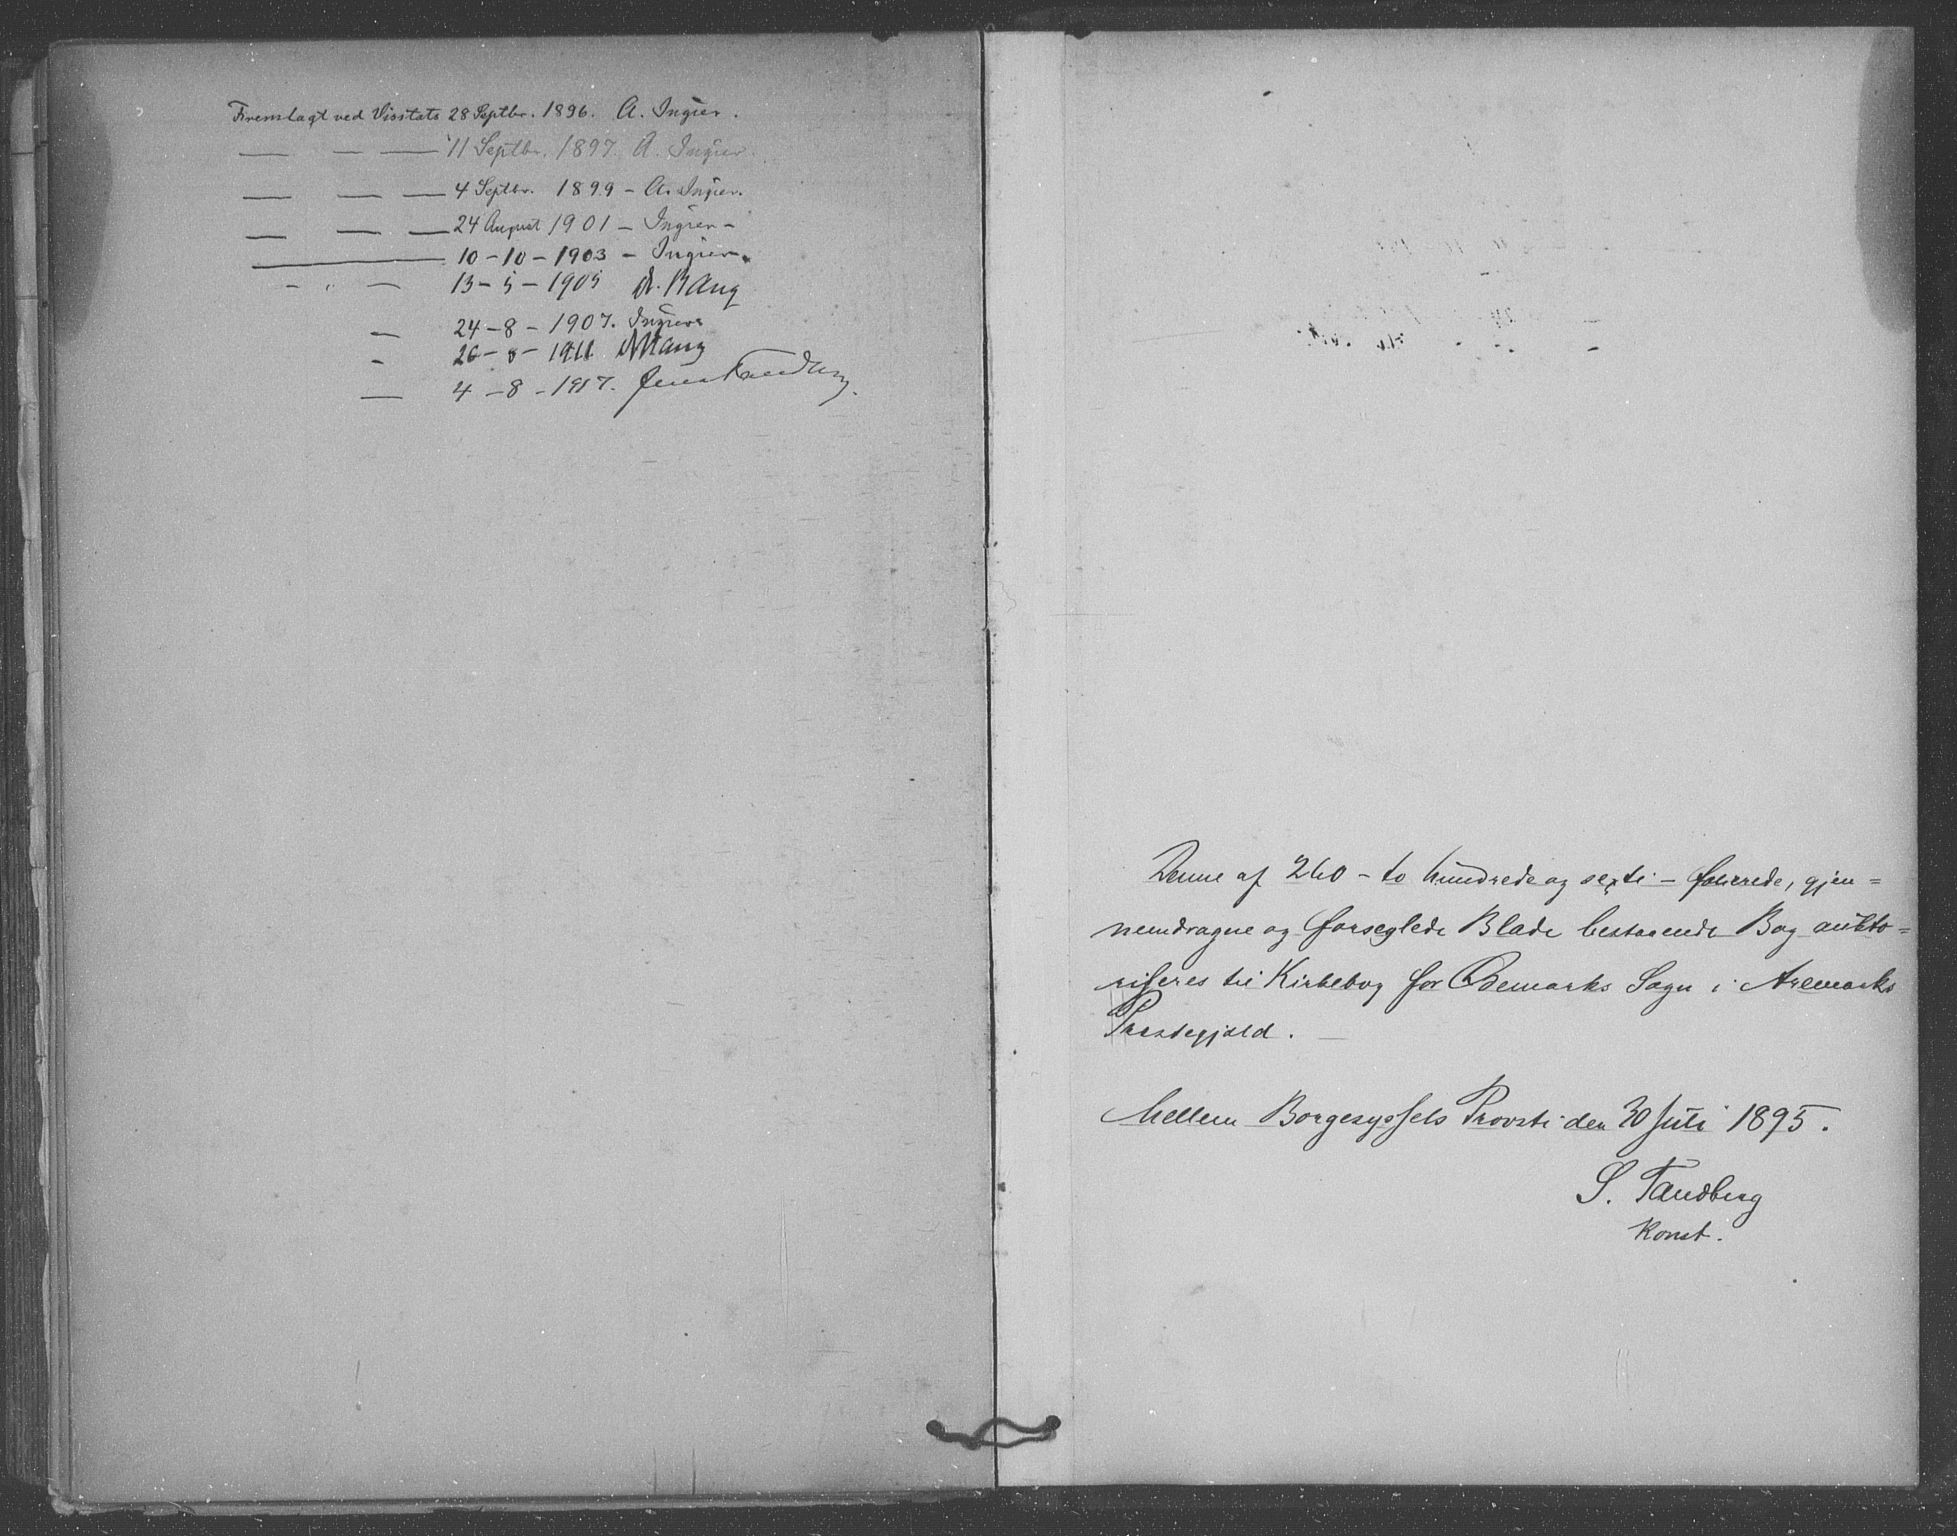 Fremlagt ved Visitats 28 Septbr. 1896. A. Ingier.
— — — 11 Septbr. 1897. A. Ingier.
— — — 4 Septbr. 1899 – A. Ingier.
— — — 24 August 1901 – Ingier –
— 10 – 10 – 1903 – Ingier.
– " – 13 – 5 – 1905 A. Bang
– 24 – 8 – 1907. Ingier
– 26 – 8 – 1911 A Bang
— 4 – 8 – 1917. Jens Tandberg.
Denne af 260 – to hundrede og sexti – folierede, gjen=
nemdragne og forseglede Blade bestaaende Bog aukto=
riseres til Kirkebog for Ødemarks Sogn i Aremarks
Præstegjæld. —
Mellem Borgesyssels Provsti den 30 Juli 1895.
S. Tandberg
Konst.